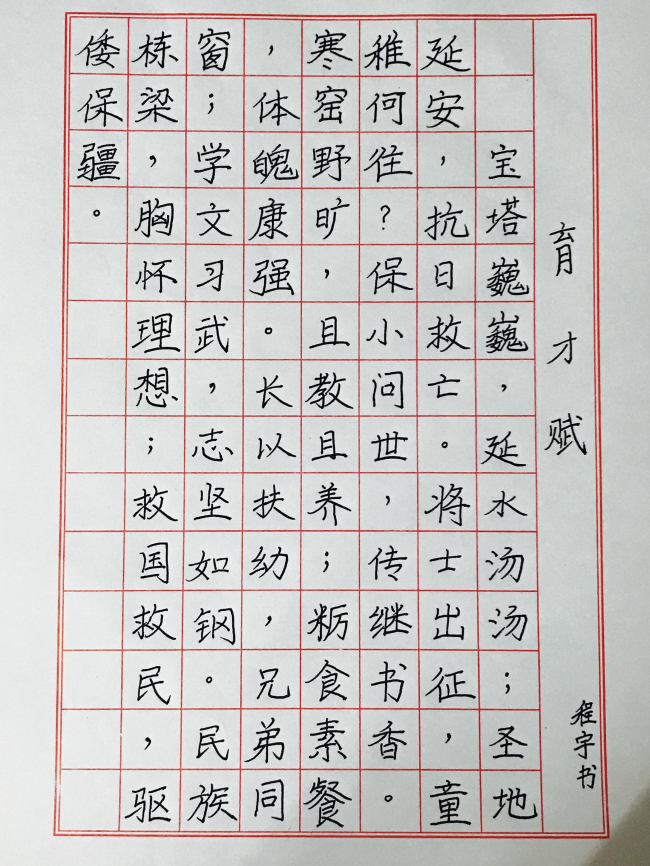 育才赋
程宇书
宝塔巍巍，延水汤汤；圣地
延安，抗日救亡。将士出征，童
稚何往？保小问世，传继书香。
寒窑野旷，且教且养；粝食素餐
，体魄康强。长以扶幼，兄弟同
窗；学文习武，志坚如钢。民族
栋梁，胸怀理想；救国救民，驱
倭保疆。